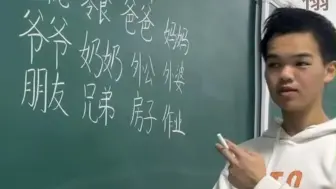 零食 爸爸 妈妈
爷爷 奶奶 外公 外婆
朋友 兄弟 房子 作业